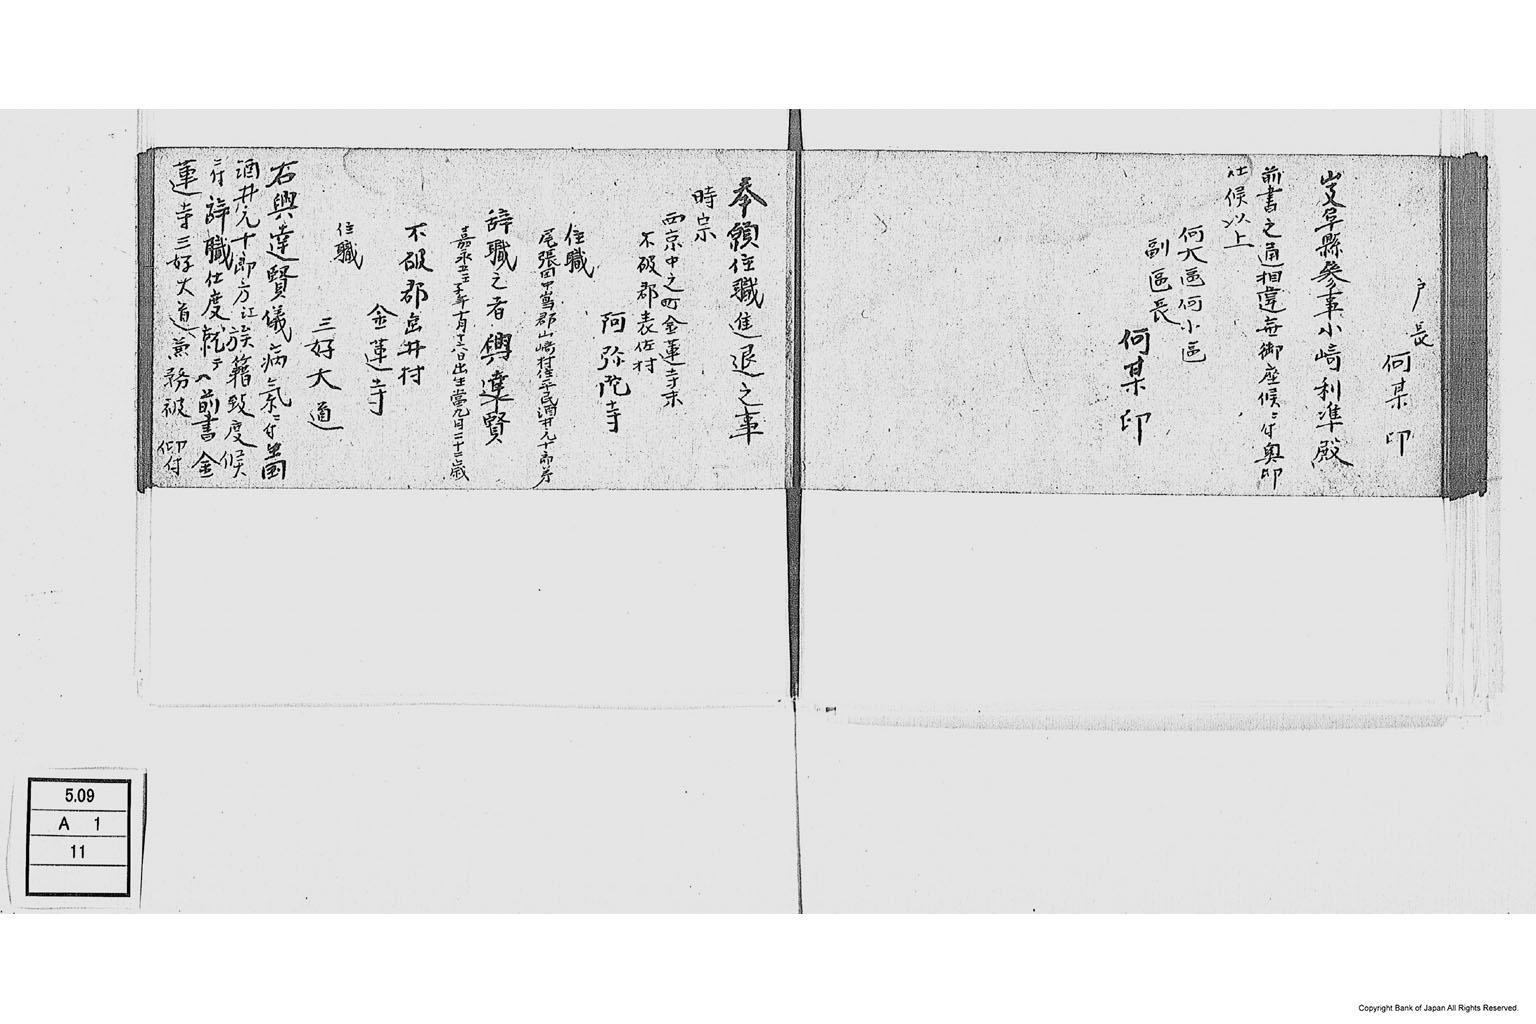 戸長
何某 印
岐阜縣參事小崎利準殿
前書之通相違無御座候ニ付奥印
仕候以上
何大區何小區
副區長
何某 印
奉願住職進退之事
時宗
西京中之町金蓮寺末
不破郡表佐村
阿弥陀寺
住職
尾張国中嶌郡山崎村住平民酒井九十郎弟
辞職之者 興達賢
嘉永五壬子年十月十六日出生當九月二十二歳
不破郡岩井村
金蓮寺
住職
三好大道
右興達賢儀病氣ニ付
酒井九十郎方江族籍致度候
ニ付辞職仕度就テハ前書金
蓮寺三好大道兼務被 仰付
5.09
A 1
11
Copyright Bank of Japan All Rights Reserved.